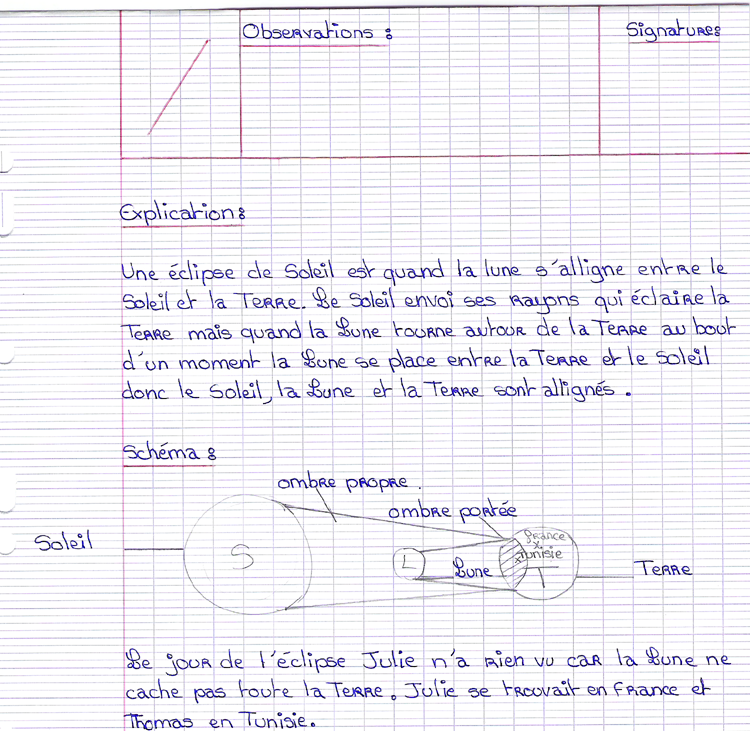 Observations :
Signature :
Explication :
Une éclipse de Soleil est quand la lune s'alligne entre le
Soleil et la Terre. Le Soleil envoi ses rayons qui éclaire la
Terre mais quand la Lune tourne autour de la Terre au bout
d'un moment la Lune se place entre la Terre et le Soleil
donc le Soleil, la Lune et la Terre sont allignés.
Schéma :
ombre propre.
ombre portée
Soleil
S
L
Lune
France
x
x Tunisie
T
Terre
Le jour de l'éclipse Julie n'a rien vu car la Lune ne
cache pas toute la Terre. Julie se trouvait en France et
Thomas en Tunisie.